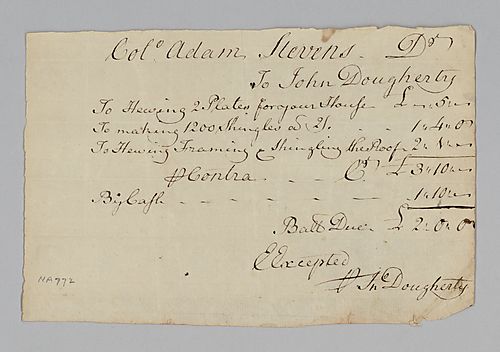 Colo. Adam Stevens Dr
To John Dougherty
To Hewing 2 Plates for your House £ ,, 5 ,,
To making 1200 Shingles @ 2/. 1,, 4,, 0
To Hewing Framing & Shingling the Roof 2,, 1,,
Contra Cr £ 3,, 10,,
By Cash 1,, 10,,
Ball Due £ 2,, 0,, 0
EExcepted
Jno Dougherty
MA972